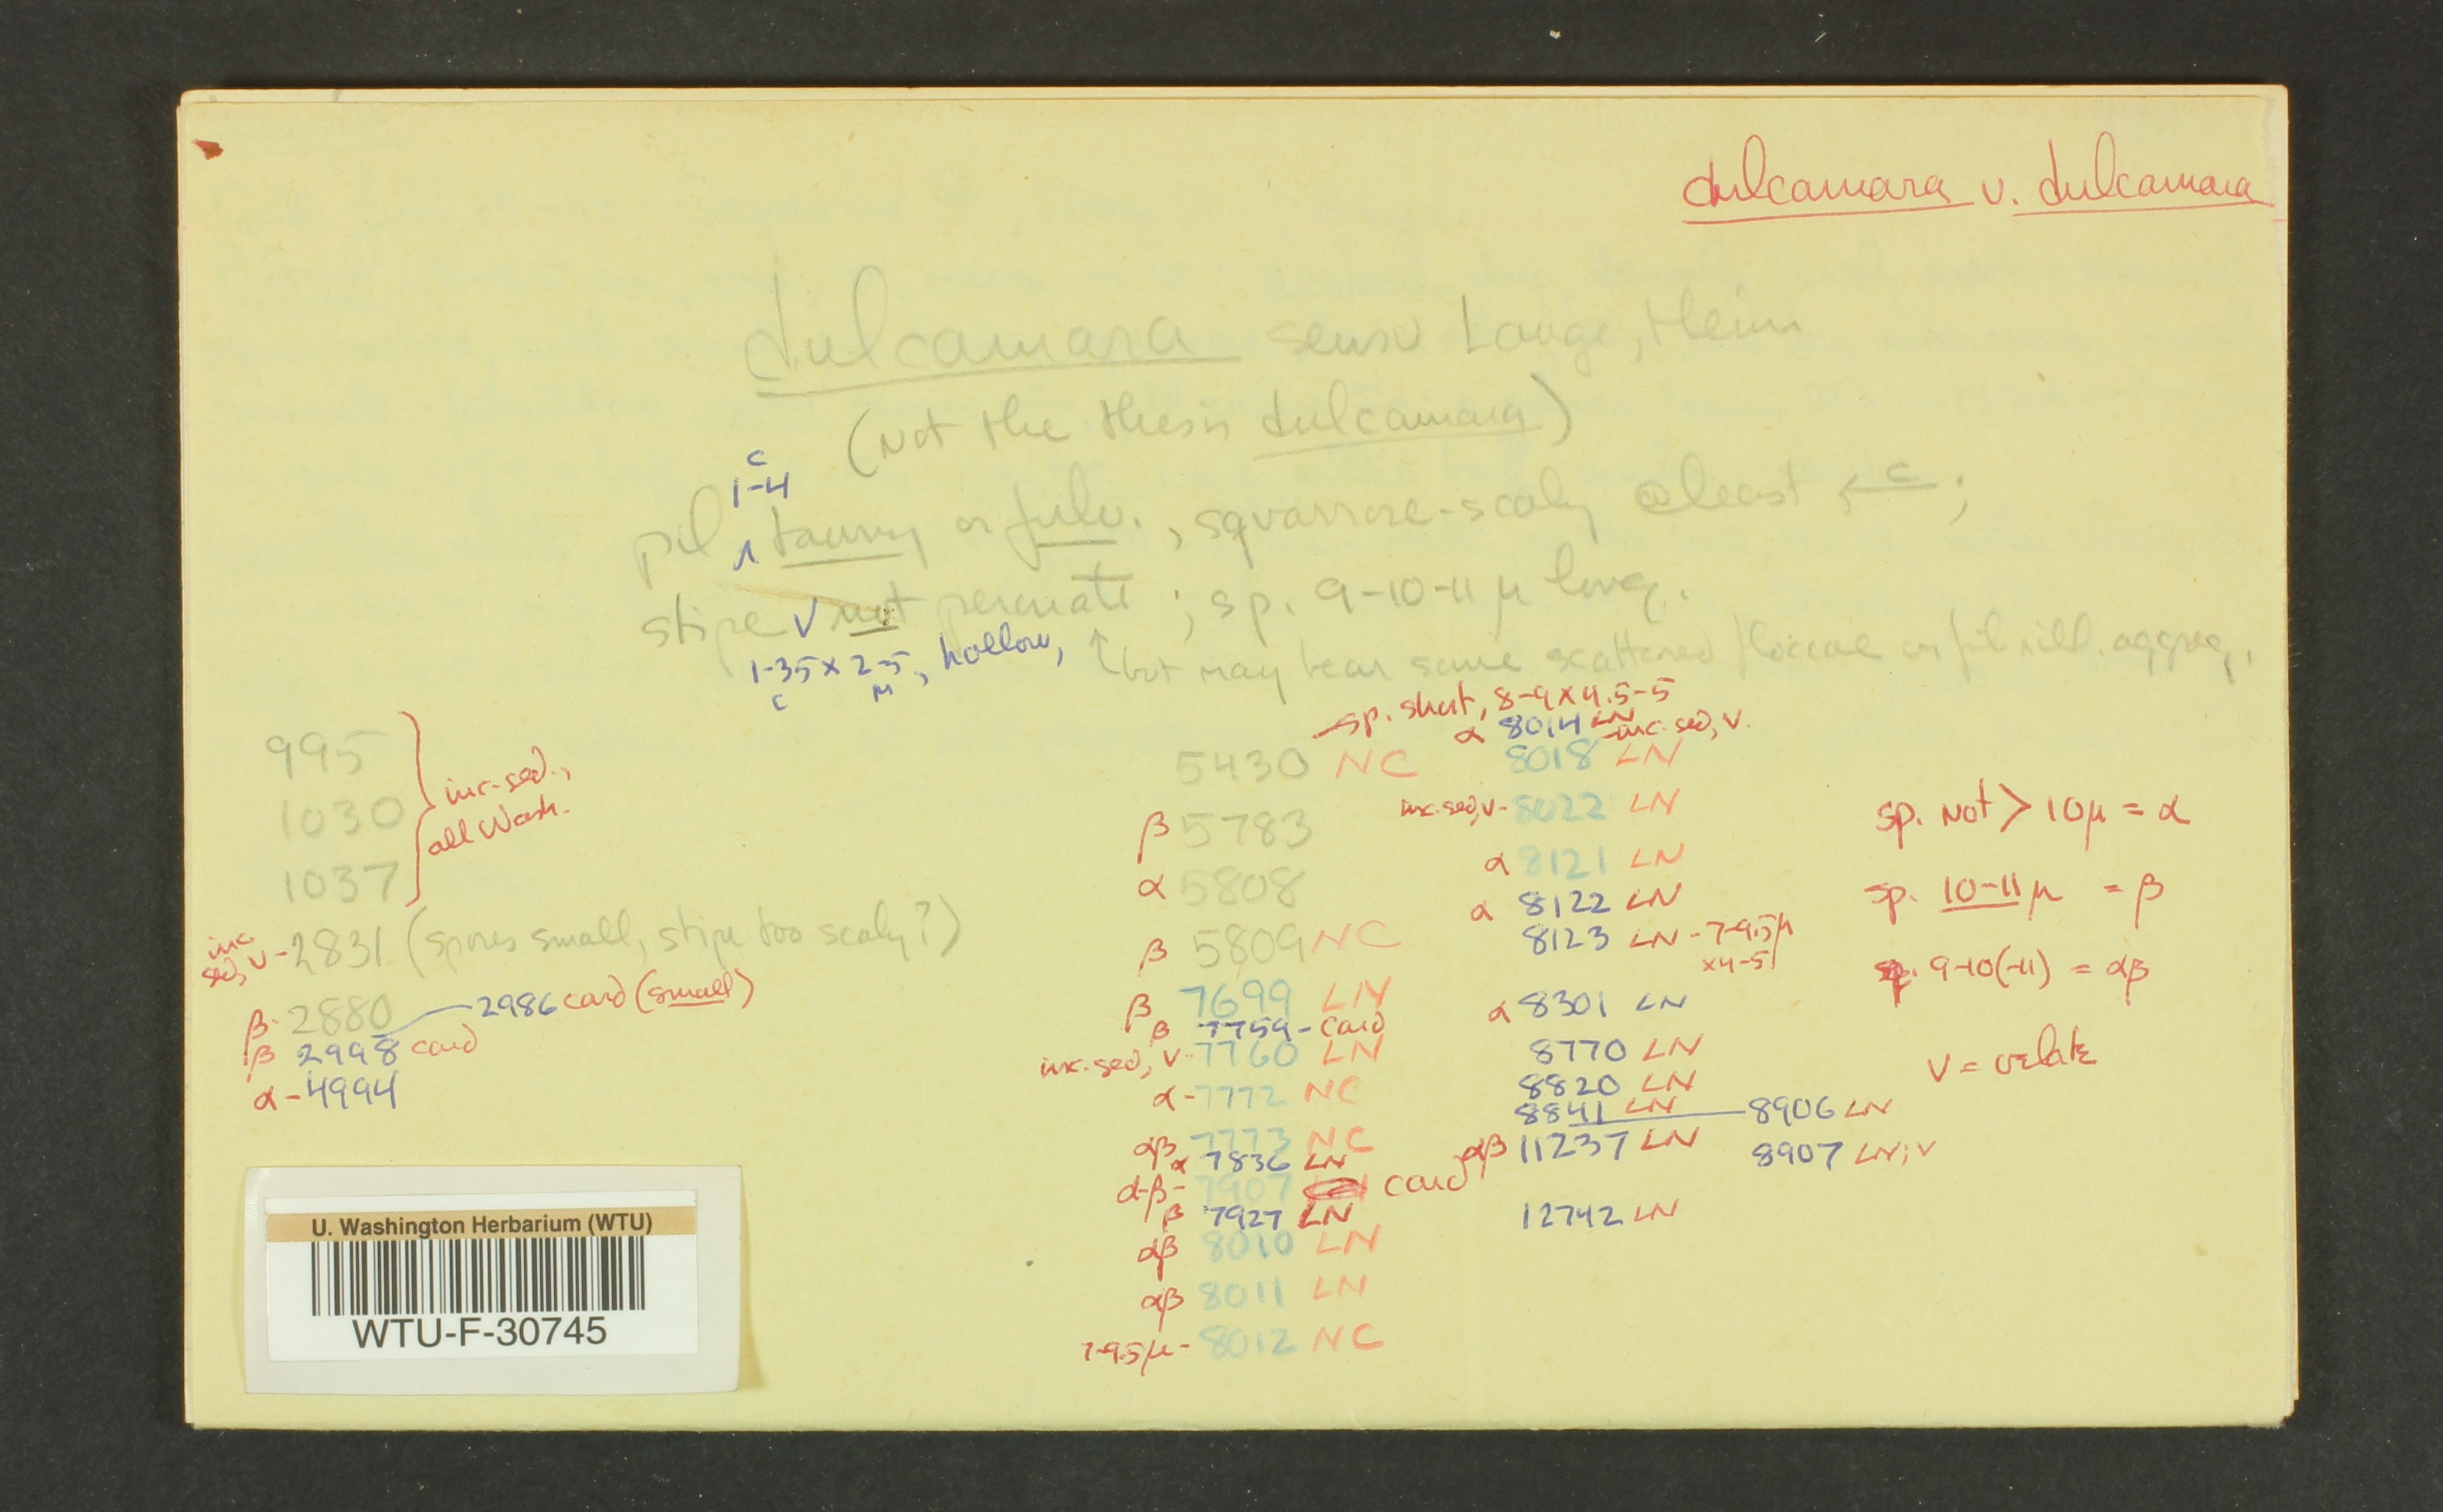 dulcamara v. dulcamara
dulcamara sensu Lange, Heim
(not the thesis dulcamara)
c
1-4
pil ʌ tawny or fulv., squarrose-scaly @least ← c ;
stipe V not peronate ; sp. 9-10-11 µ long.
1-3.5 x 2-5, hollow, ↑ but may bear some scattered floccae or fibrill. aggreg.
c m
995
1030
1037
} inc. sed.,
all Wash.
inc. sed, v - 2831 (spores small, stipe too scaly?)
β - 2880 — 2986 card (small)
β 2998 card
α - 4994
sp. short, 8-9 x 4.5-5
5430 NC
β 5783
α 5808
β 5809 NC
β 7699 LN
β 7759 - card
inc. sed, v - 7760 LN
α - 7772 NC
αβ 7773 NC
α 7836 LN
α-β - 7907 card
β 7927 LN
αβ 8010 LN
αβ 8011 LN
7-9.5µ - 8012 NC
α 8014 LN
8018 LN - inc. sed, v.
inc. sed, v - 8022 LN
α 8121 LN
α 8122 LN
8123 LN - 7-9.5µ
x 4-5
α 8301 LN
8770 LN
8820 LN
8841 LN — 8906 LN
αβ 11237 LN
8907 LN; v
12742 LN
sp. not > 10µ = α
sp. 10-11 µ = β
sp. 9-10(-11) = αβ
v = velate
U. Washington Herbarium (WTU)
WTU-F-30745